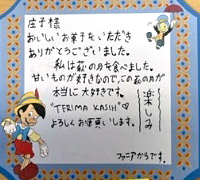 庄子様
おいしいお菓子をいただき
ありがとうございました。
私は萩の月を食べました。
甘いものが好きなので、この萩の月が
本当に大好きです。
"TERIMA KASIH"♡
よろしくお願いします。
楽しみ
ファニアからです。